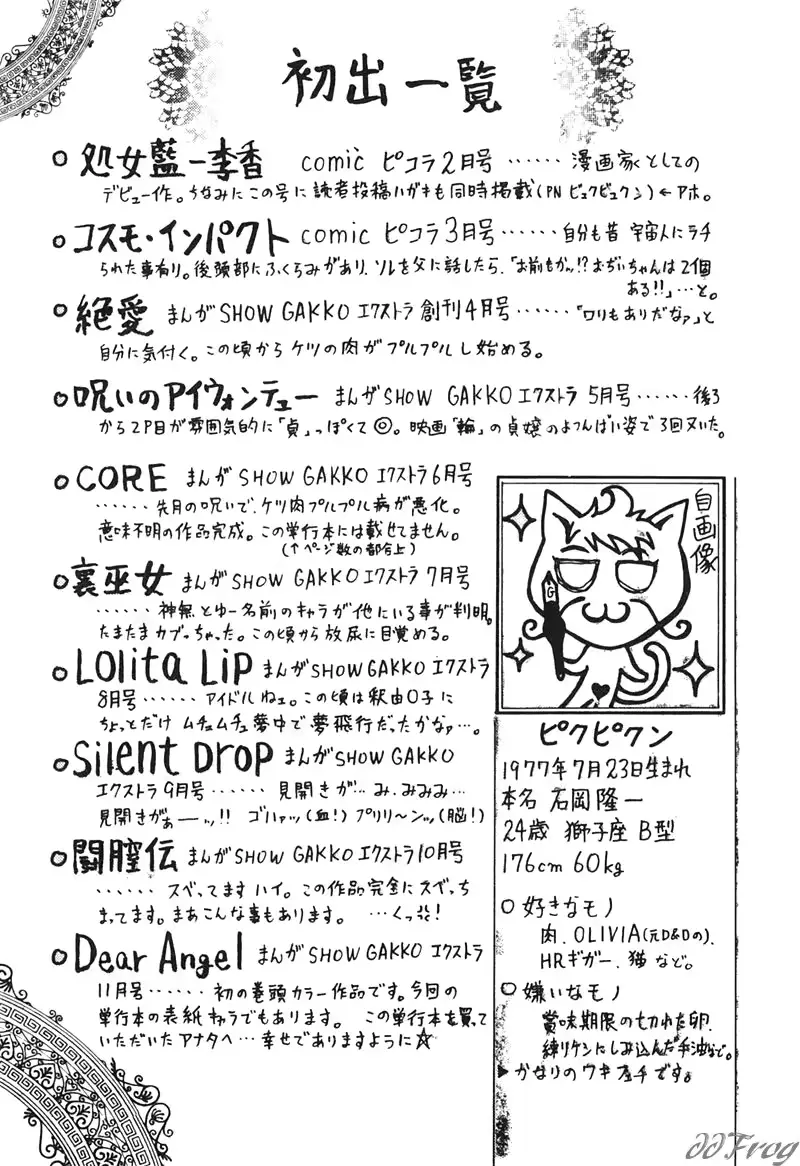 初出一覧
○処女藍－李香 comic ピコラ2月号 ‥‥‥ 漫画家としての
デビュー作。ちなみにこの号に読者投稿ハガキも同時掲載(PN ビュクビュクン)←アホ。
○コスモ・インパクト comic ピコラ3月号‥‥‥自分も昔 宇宙人にラチ
られた事有り。後頭部にふくらみがあり、ソレを父に話したら、「お前もかッ!?おぢいちゃんは2個
ある!!」…と。
○絶愛 まんがSHOW GAKKOエクストラ創刊4月号‥‥‥「ロリもありだなァ」と
自分に気付く。この頃からケツの肉がプルプルし始める。
○呪いのアイウォンテュー まんがSHOW GAKKOエクストラ 5月号‥‥‥後ろ
から2P目が雰囲気的に「貞」っぽくて◎。映画「輪」の貞嬢のよつんばい姿で3回ヌいた。
○CORE まんがSHOW GAKKOエクストラ6月号
‥‥‥先月の呪いで、ケツ肉プルプル病が悪化。
意味不明の作品完成。この単行本には載せてません。
(↑ページ数の都合上)
○裏巫女 まんがSHOW GAKKOエクストラ7月号
‥‥‥神無とゆー名前のキャラが他にいる事が判明。
たまたまカブっちゃった。この頃から放尿に目覚める。
○Lolita Lip まんがSHOW GAKKOエクストラ
8月号‥‥‥アイドルねェ。この頃は釈由○子に
ちょっとだけ ムチュムチュ夢中で夢飛行だったかなァ…。
○Silent Drop まんがSHOW GAKKO
エクストラ9月号‥‥‥見開きが…み、みみみ…
見開きがぁーーッ!! ゴハァッ(血!)プリリ〜ンッ(脳!)
○闘膣伝 まんがSHOW GAKKOエクストラ10月号
‥‥‥スベってます ハイ。この作品完全にスベっち
まってます。まあこんな事もあります。 …くっ!
○Dear Angel まんがSHOW GAKKOエクストラ
11月号‥‥‥初の巻頭カラー作品です。今回の
単行本の表紙キャラでもあります。 この単行本を買って
いただいたアナタへ…幸せでありますように☆
自画像
G
ピクピクン
1977年7月23日生まれ
本名 石岡隆一
24歳 獅子座 B型
176cm 60kg
○好きなモノ
肉、OLIVIA(元D&Dの)、
HRギガー、猫 など。
○嫌いなモノ
賞味期限の切れた卵、
練りケシにしみ込んだ手油など。
▶かなりのワキフェチです。
JJFrog